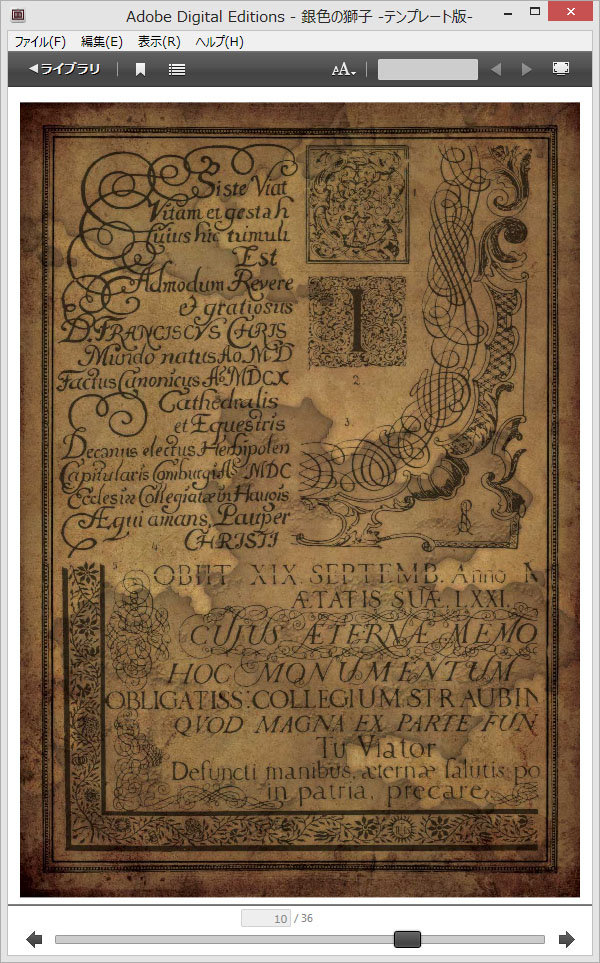 Adobe Digital Editions - 銀色の獅子 -テンプレート版-
ファイル(F) 編集(E) 表示(R) ヘルプ(H)
ライブラリ
AA
Siste Viat
Vitam et gesta h
Cuius hic tumuli
Est
Admodum Revere
et gratiosus
D. FRANCISCVS CHRIS
Mundo natus Ao. M D
Factus Canonicus Ao MDCX
Cathedralis
et Equestris
Decanus electus Herbipolen
Capitularis Comburgens MDC
Ecclesiæ Collegiatæ in Haugis
Æqui amans, Pauper
CHRISTI
1
I
2
3.
4.
5
OBIIT XIX. SEPTEMB. Anno M
ÆTATIS SUÆ. LXXI.
CUJUS ÆTERNÆ MEMO
HOC MONUMENTUM
OBLIGATISS: COLLEGIUM STRAUBIN
QVOD MAGNA EX PARTE FUN
Tu Viator
Defuncti manibus, æternæ salutis po
in patria, precare.
10 / 36